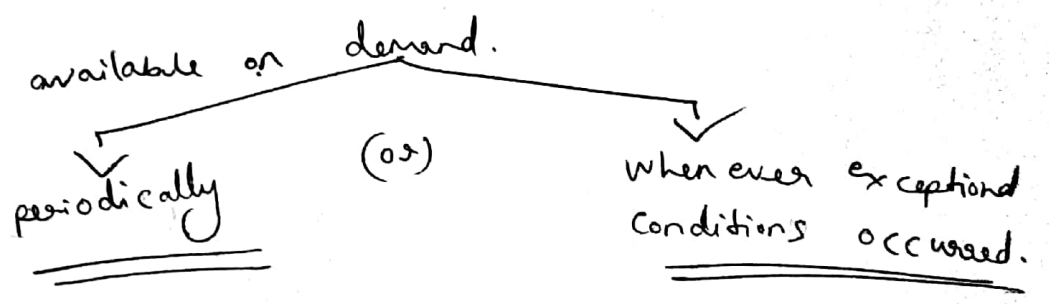 available on demand.
periodically
(or)
whenever exceptional
conditions occurred.